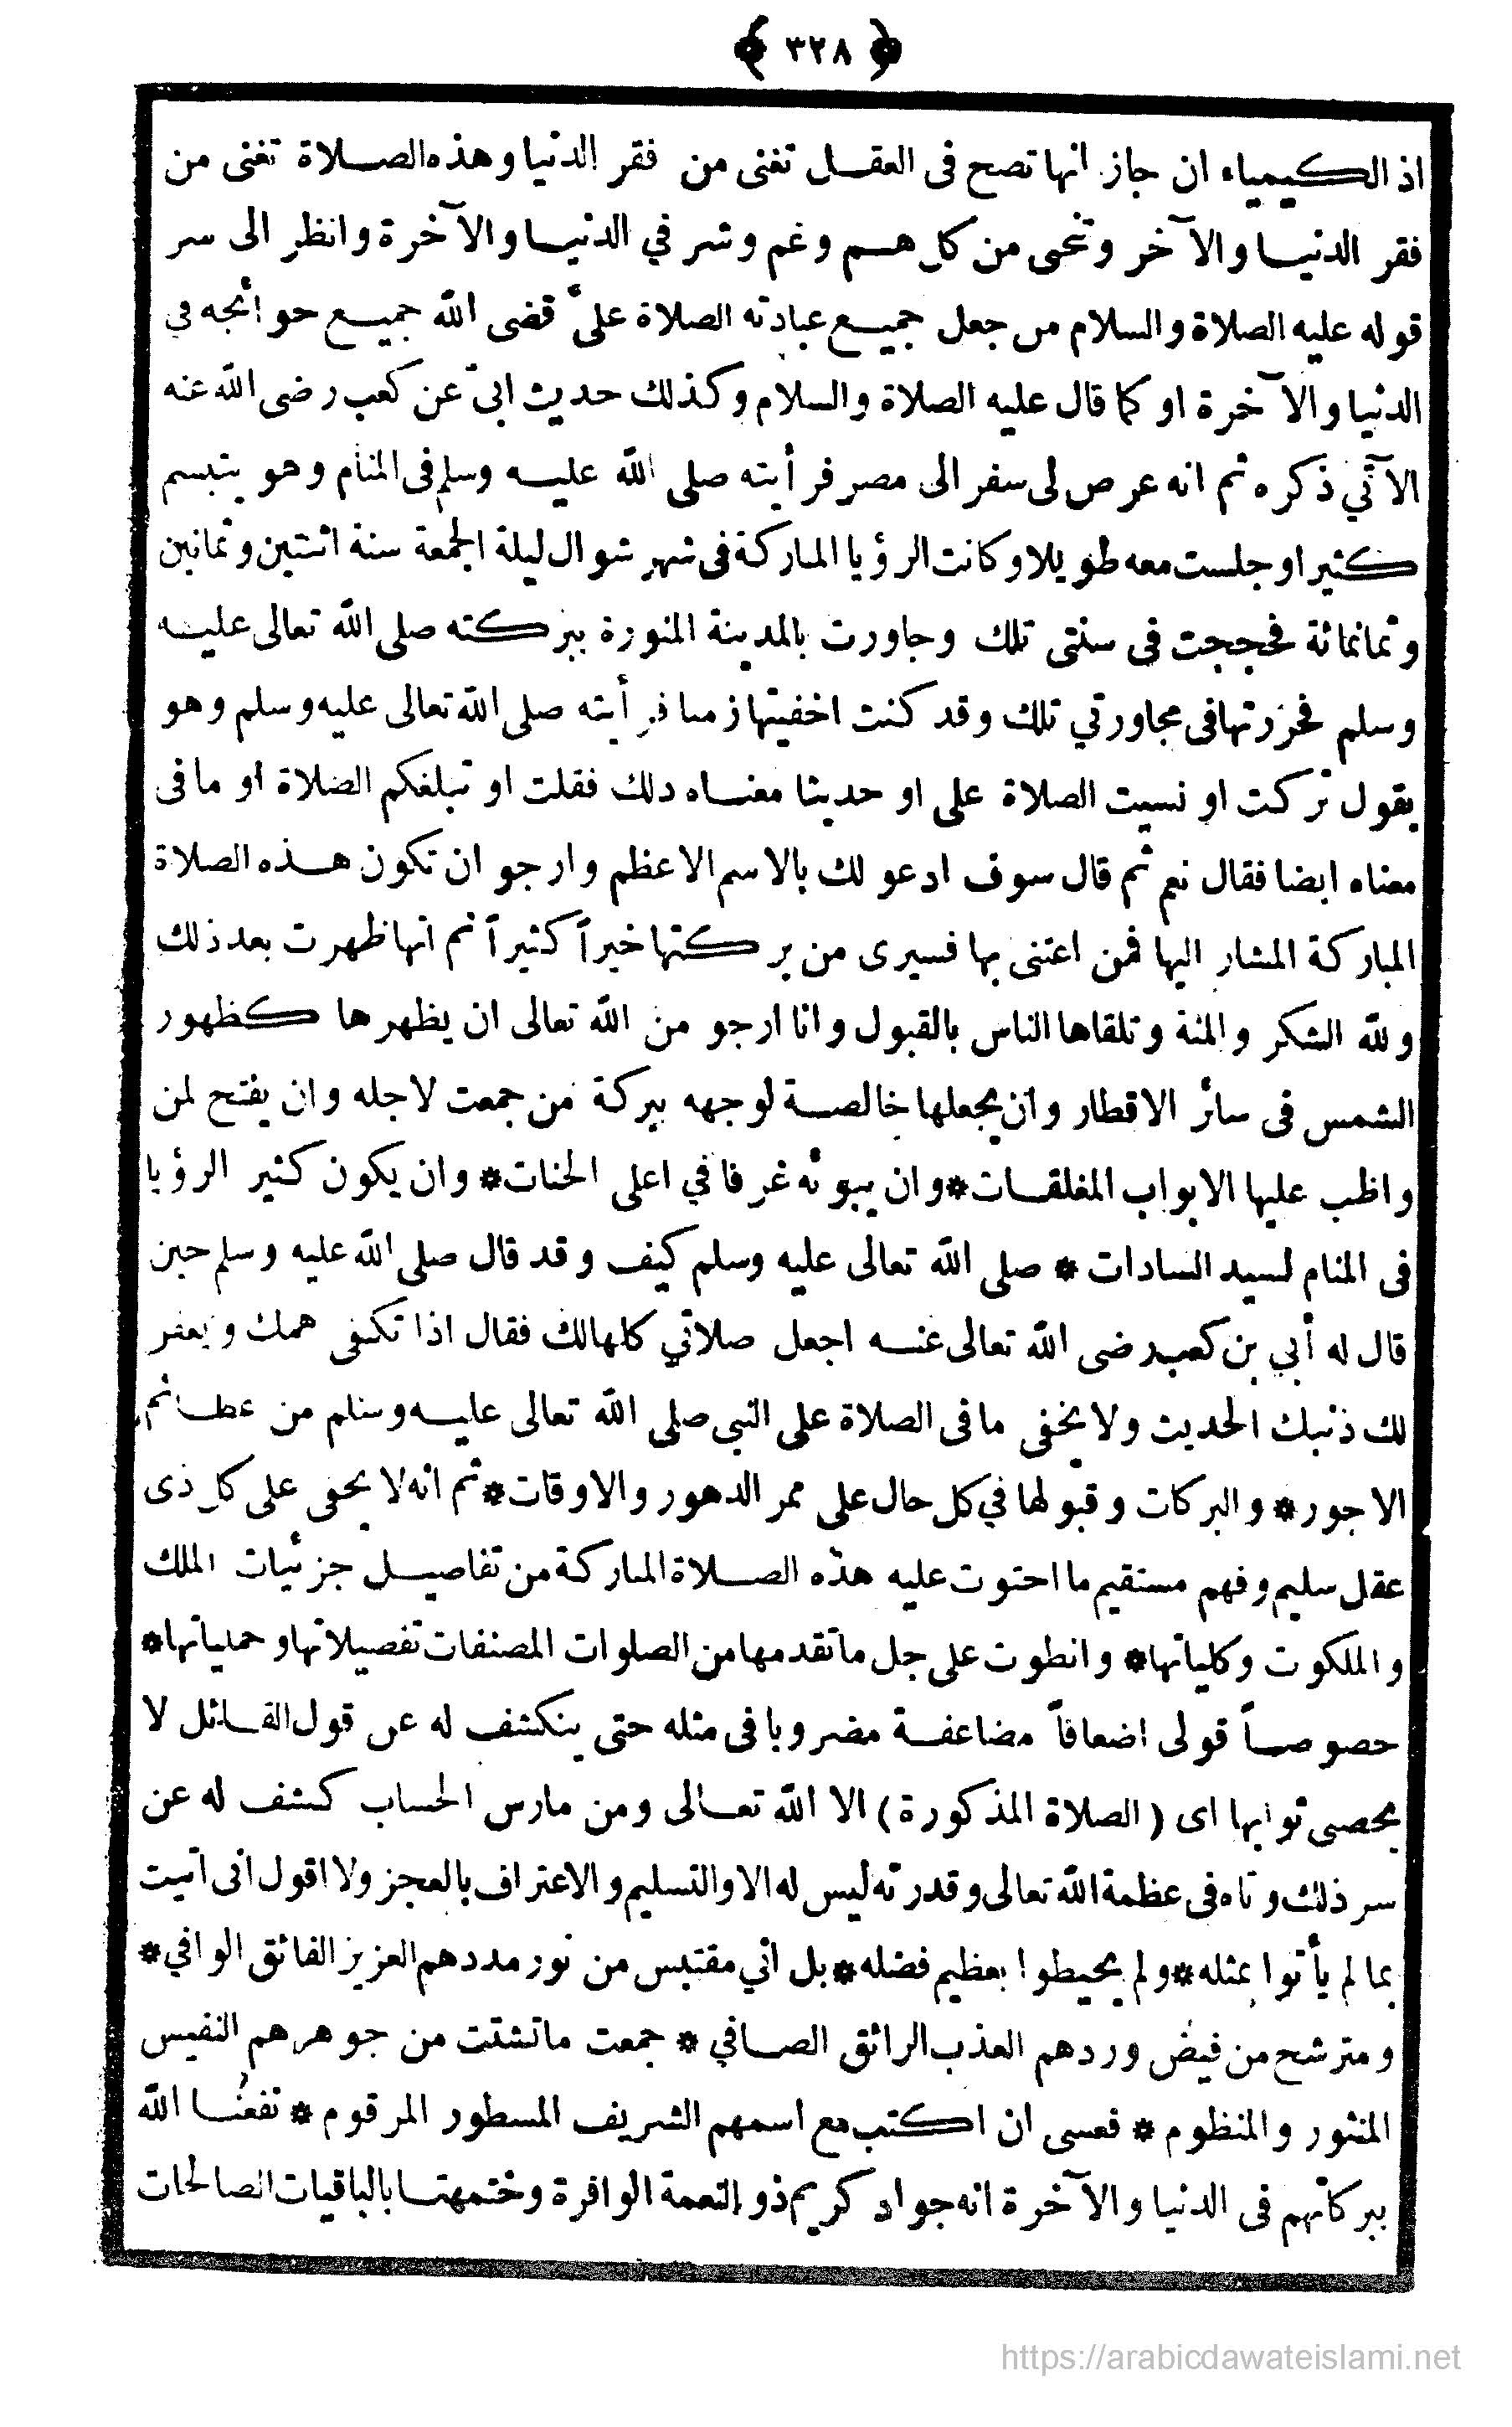 ﴿ ٣٢٨ ﴾
اذ الكيمياء ان جاز انها تصح فى العقل تغنى من فقر الدنيا وهذه الصلاة تغنى من
فقر الدنيا والآخر وتنجى من كل هم وغم وشر في الدنيا والآخرة وانظر الى سر
قوله عليه الصلاة والسلام من جعل جميع عبادته الصلاة علىّ قضى الله جميع حوائجه في
الدنيا والآخرة او كما قال عليه الصلاة والسلام وكذلك حديث ابىّ عن كعب رضى الله عنه
الآتي ذكره ثم انه عرض لى سفر الى مصر فرأيته صلى الله عليه وسلم فى المنام وهو يتبسم
كثيرا وجلست معه طويلا وكانت الرؤيا المباركة فى شهر شوال ليلة الجمعة سنة اثنتين وثمانين
وثمانمائة فحججت فى سنتى تلك وجاورت بالمدينة المنورة ببركته صلى الله تعالى عليه
وسلم فحررتها فى مجاورتي تلك وقد كنت اخفيتها زمنا فرأيته صلى الله تعالى عليه وسلم وهو
يقول تركت او نسيت الصلاة على او حديثا معناه ذلك فقلت او تبلغكم الصلاة او ما فى
معناه ايضا فقال نعم ثم قال سوف ادعو لك بالاسم الاعظم وارجو ان تكون هذه الصلاة
المباركة المشار اليها فمن اعتنى بها فسيرى من بركتها خيراً كثيراً ثم انها ظهرت بعد ذلك
ولله الشكر والمنة وتلقاها الناس بالقبول وانا ارجو من الله تعالى ان يظهرها كظهور
الشمس فى سائر الاقطار وان يجعلها خالصة لوجهه ببركة من جمعت لاجله وان يفتح لمن
واظب عليها الابواب المغلقات* وان يبوئه غرفا في اعلى الجنات* وان يكون كثير الرؤيا
فى المنام لسيد السادات * صلى الله تعالى عليه وسلم كيف وقد قال صلى الله عليه وسلم حين
قال له أبي بن كعب رضى الله تعالى عنه اجعل صلاتي كلها لك فقال اذا تكفى همك ويغفر
لك ذنبك الحديث ولا يخفى ما فى الصلاة على النبى صلى الله تعالى عليه وسلم من عظائم
الاجور* والبركات وقبولها في كل حال على ممر الدهور والاوقات* ثم انه لا يخفى على كل ذى
عقل سليم وفهم مستقيم ما احتوت عليه هذه الصلاة المباركة من تفاصيل جزئيات الملك
والملكوت وكلياتها* وانطوت على جل ما تقدمها من الصلوات المصنفات تفصيلاتها وجملياتها*
خصوصاً قولى اضعافاً مضاعفة مضروبا فى مثله حتى ينكشف له عن قول القائل لا
يحصى ثوابها اى (الصلاة المذكورة) الا الله تعالى ومن مارس الحساب كشف له عن
سر ذلك وتاه فى عظمة الله تعالى وقدرته ليس له الا والتسليم والاعتراف بالعجز ولا اقول انى اتيت
بما لم يأتوا بمثله* ولم يحيطوا بعظيم فضله* بل اني مقتبس من نور مددهم العزيز الفائق الوافي*
ومترشح من فيض وردهم العذب الرائق الصافي * جمعت ما تشتت من جوهرهم النفيس
المنثور والمنظوم * فعسى ان اكتب مع اسمهم الشريف المسطور المرقوم * نفعنا الله
ببركاتهم فى الدنيا والآخرة انه جواد كريم ذو النعمة الوافرة وختمهتا بالباقيات الصالحات
https://arabicdawateislami.net